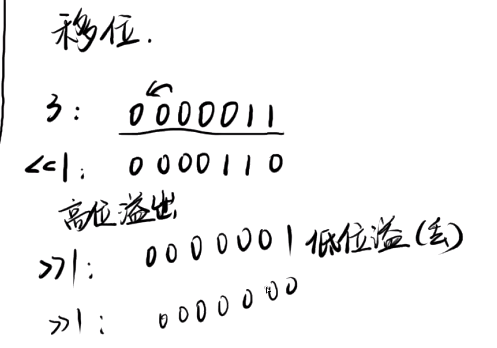 移位.
3: 0000011
<<1: 0000110
高位溢出
>>1: 0000001 低位溢(丢)
>>1: 0000000